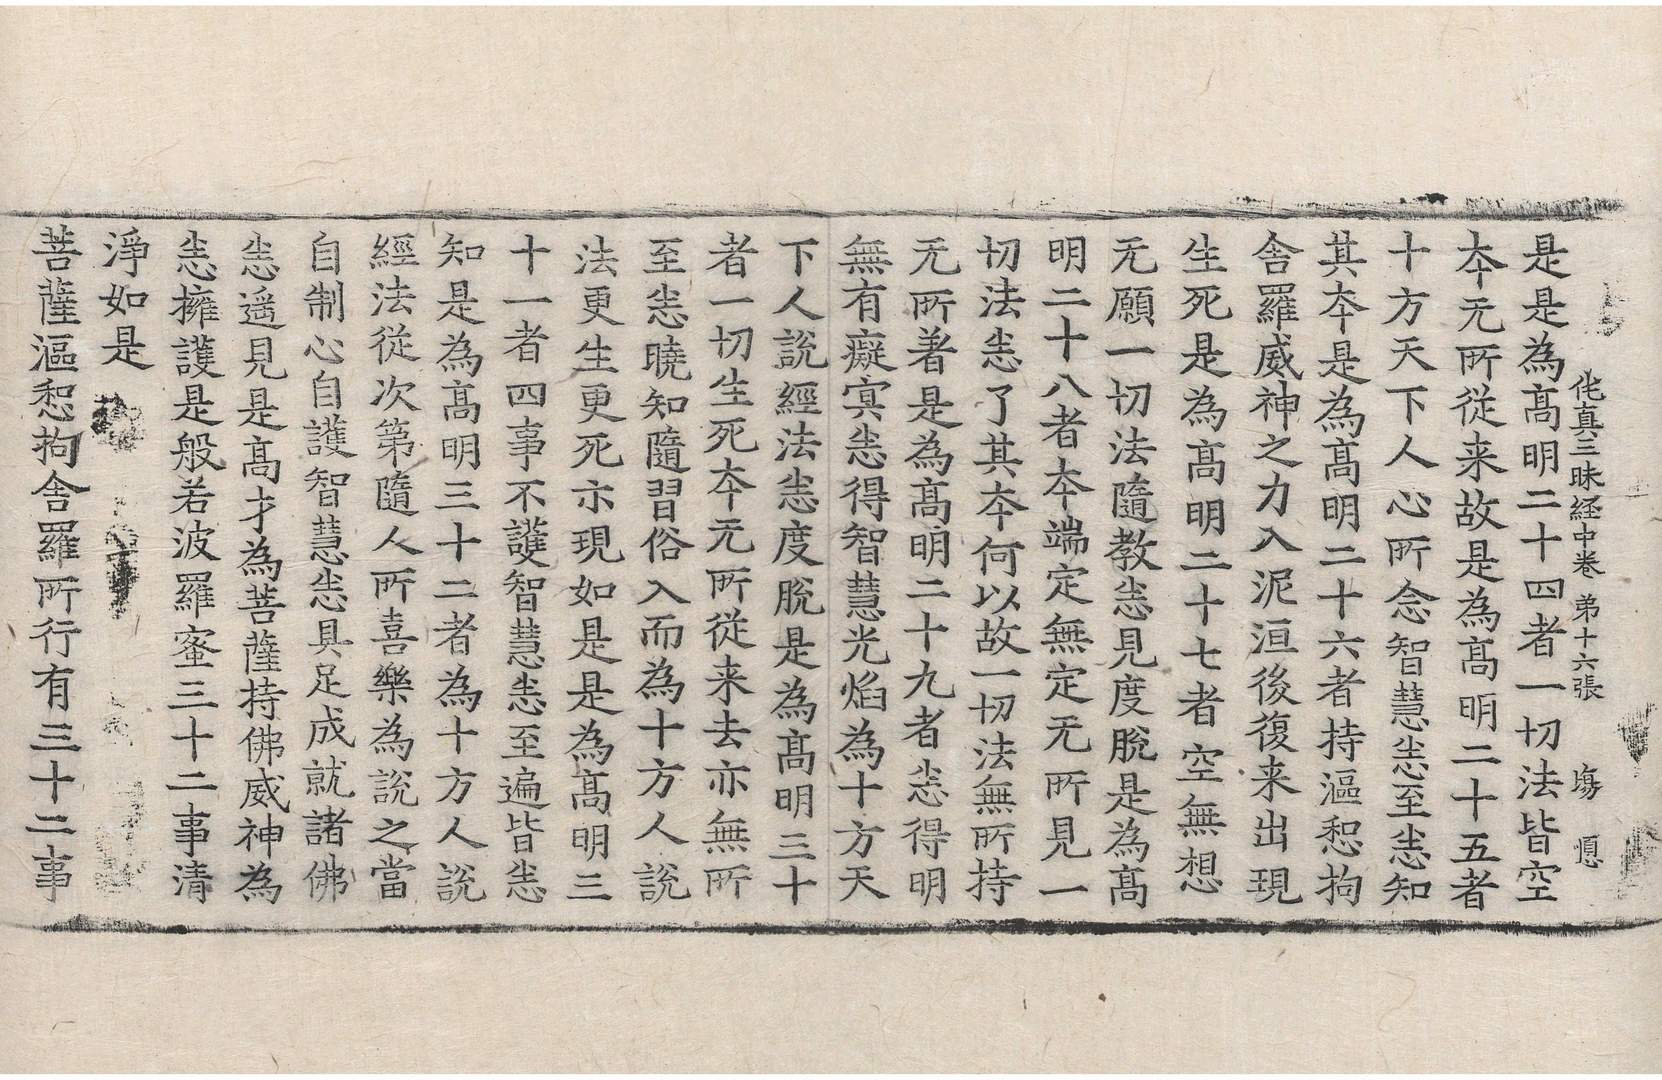 佗真三昧経中卷 第十六張 塲 㥯
是是為髙明二十四者一切法皆空
夲无所從来故是為髙明二十五者
十方天下人心所念智慧㤅至㤅知
其夲是為髙明二十六者持漚惒拘
舎羅威神之力入泥洹後復来出現
生死是為髙明二十七者空無想
无願一切法隨教㤅見度脫是為髙
明二十八者夲端定無定无所見一
切法㤅了其夲何以故一切法無所持
无所著是為髙明二十九者㤅得明
無有癡冥㤅得智慧光焰為十方天
下人說經法㤅度脫是為髙明三十
者一切生死夲无所從来去亦無所
至㤅曉知隨習俗入而為十方人說
法更生更死示現如是是為髙明三
十一者四事不護智慧㤅至遍皆㤅
知是為髙明三十二者為十方人說
經法從次第隨人所喜樂為說之當
自制心自護智慧㤅具足成就諸佛
㤅遥見是髙才為菩薩持佛威神為
㤅擁護是般若波羅蜜三十二事清
淨如是
菩薩漚惒拘舎羅所行有三十二事